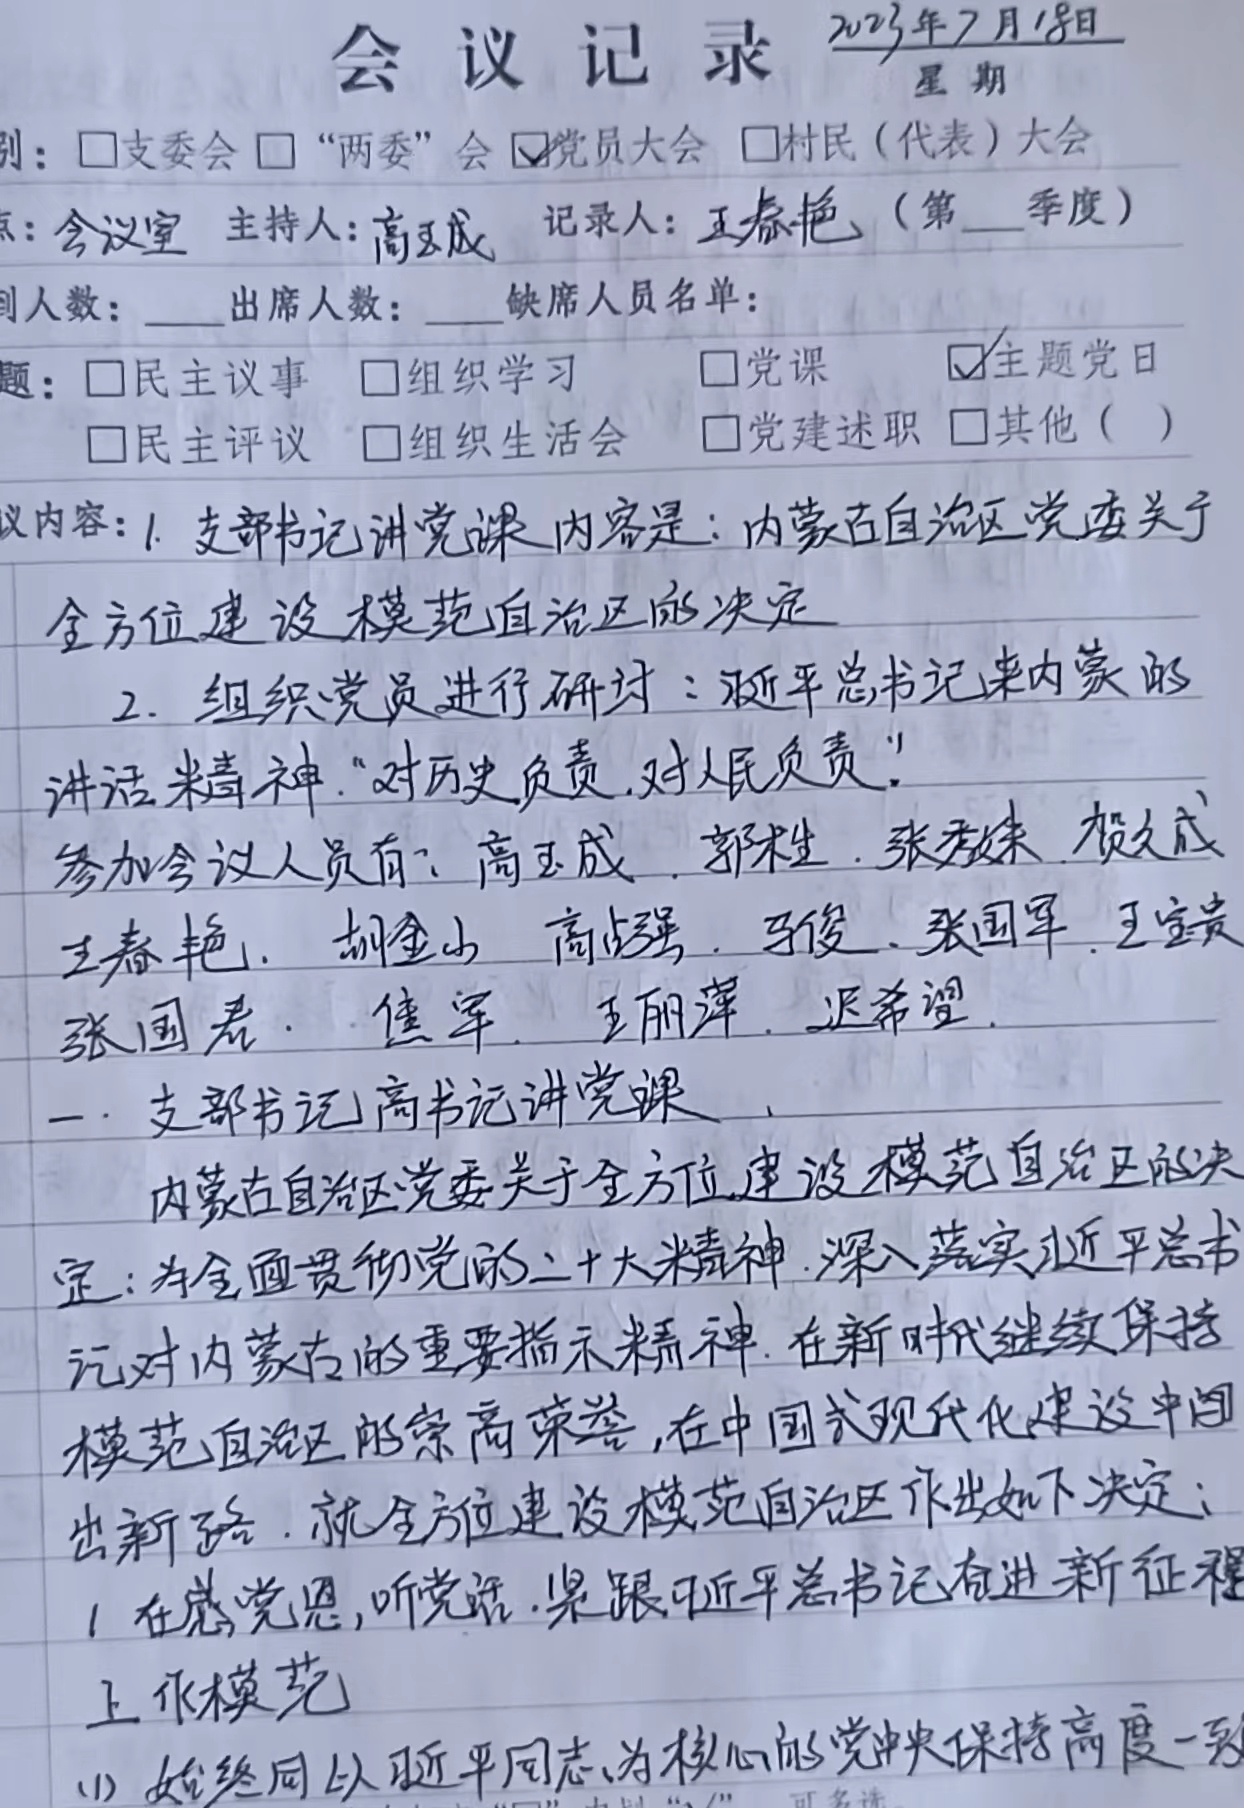 会议记录 2023年7月18日
星期
别：□支委会 □“两委”会 ☑党员大会 □村民（代表）大会
点：会议室 主持人：高玉成 记录人：王春艳（第___季度）
到人数：____出席人数：____缺席人员名单：
题：□民主议事 □组织学习 □党课 ☑主题党日
□民主评议 □组织生活会 □党建述职 □其他（ ）
议内容：1. 支部书记讲党课内容是：内蒙古自治区党委关于
全方位建设模范自治区的决定
2. 组织党员进行研讨：习近平总书记来内蒙的
讲话精神“对历史负责.对人民负责”
参加会议人员有：高玉成.郭桂.张秀妹.贺久成
王春艳.胡金山 高占强.马俊.张国军.王宝贵
张国君.焦军.王丽萍.迟希望.
一.支部书记高书记讲党课
内蒙古自治区党委关于全方位建设模范自治区的决
定：为全面贯彻党的二十大精神.深入落实习近平总书
记对内蒙古的重要指示精神.在新时代继续保持
模范自治区的崇高荣誉,在中国式现代化建设中闯
出新路.就全方位建设模范自治区作出如下决定：
1 在感党恩,听党话.紧跟习近平总书记奋进新征程
上作模范
(1) 始终同以习近平同志为核心的党中央保持高度一致
可多选